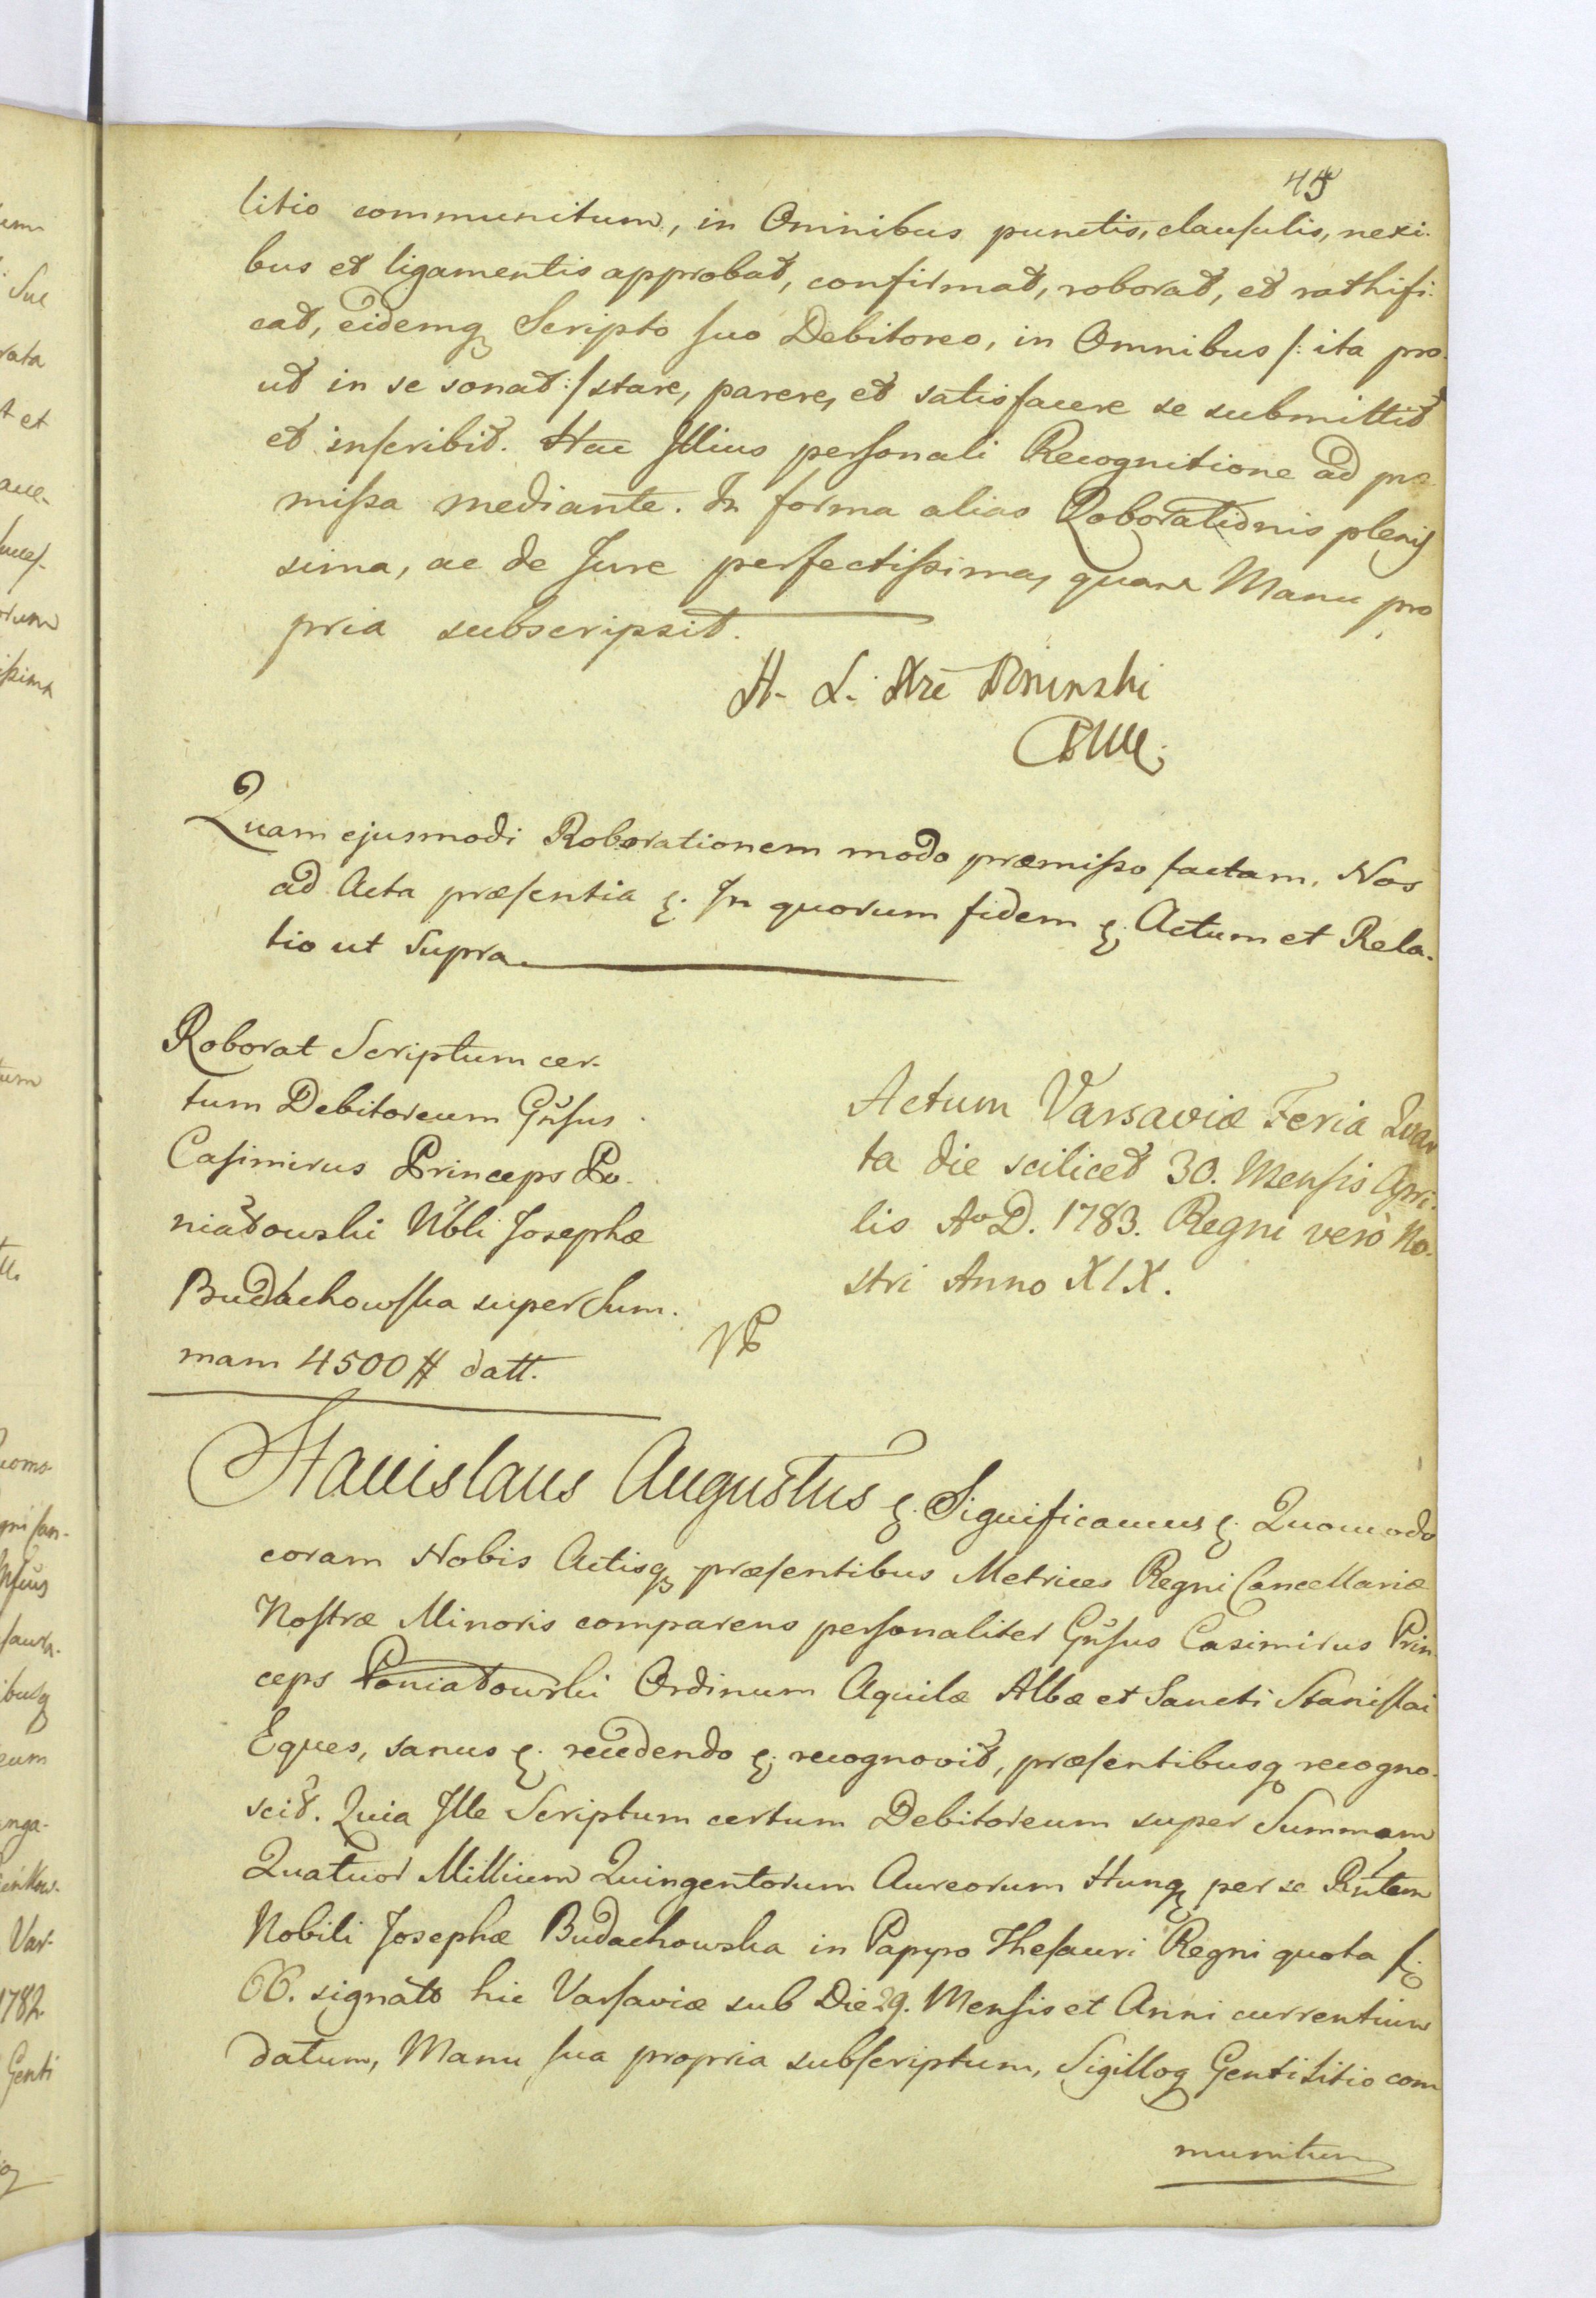 45
litio communitum, in Omnibus punctis, clausulis, nexi-
bus et ligamentis approbat, confirmat, roborat, et rathifi-
cat, eidemq Scripto suo Debitoreo, in Omnibus /: ita pro-
ut in se sonat :/ stare, parere, et satisfacere se submittit
et inscribit. Hac Illius personali Recognitione ad præ
missa mediante. In forma alias Roborationis plenis
sima, ac de Jure perfectissima, quare Manu pro
pria subscripsit.
Quam ejusmodi Roborationem modo præmisso factam, Nos
ad Acta præsentia &. In quorum fidem &. Actum et Rela-
tio ut Supra.
Roborat Scriptum cer-
tum Debitoreum Gn̄sus
Casimirus Princeps Po-
niatowski Nbli Josephæ
Budachowska super Sum-
mam 4500 # datt.
Actum Varsaviæ Feria Quar
ta die scilicet 30. Mensis Apri-
lis Ao D. 1783. Regni verò No-
stri Anno XIX.
Stanislaus Augustus &. Significamus &. Quomodo
coram Nobis Actisq præsentibus Metrices Regni Cancellariæ
Nostræ Minoris comparens personaliter Gn̄sus Casimirus Prin
ceps Poniatowski Ordinum Aquilæ Albæ et Sancti Stanislai
Eques, sanus &. recedendo &. recognovit, præsentibusq recogno-
scit. Quia Ille Scriptum certum Debitoreum super Summam
Quatuor Millium Quingentorum Aureorum Hungq per se Rn̄tem
Nobili Josephæ Budachowska in Papyro Thesauri Regni quota
66. signato hic Varsaviæ sub Die 29. Mensis et Anni currentium
datum, Manu sua propria subscriptum, Sigilloq Gentilitio com
munitum